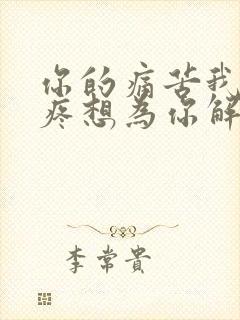 你的痛苦我
疼想為你解
李常貴